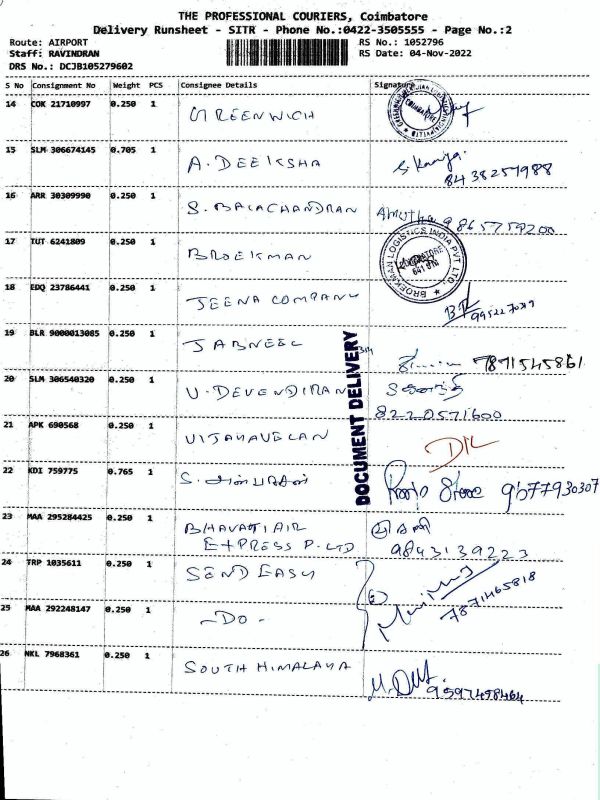 THE PROFESSIONAL COURIERS, Coimbatore
Delivery Runsheet - SITR - Phone No.:0422-3505555 - Page No.:2
Route: AIRPORT RS No.: 1052796
Staff: RAVINDRAN RS Date: 04-Nov-2022
DRS No.: DCJB105279602
S No Consignment No Weight PCS Consignee Details Signature
14 COK 21710997 0.250 1 GREENWICH
15 SLM 306674145 0.705 1 A. DEEKSHA
8438257988
16 ARR 30309990 0.250 1 S. BALACHANDRAN Amutha 9865759200
17 TUT 6241809 0.250 1 BROEKMAN
BROEKMAN LOGISTICS INDIA PVT. LTD.
18 EDQ 23786441 0.250 1 JEENA COMPANY
19 BLR 9000013085 0.250 1 JABNEEL 7871545861
DOCUMENT DELIVERY
20 SLM 306540320 0.250 1 V. DEVENDIRAN
8220571600
21 APK 690568 0.250 1 VIJAYAVELAN
22 KDI 759775 0.765 1 S. 9577930307
23 MAA 295284425 0.250 1 BHAVATI AIR
EXPRESS P. LTD 9843139223
24 TRP 1035611 0.250 1 SEND EASY
7871465818
25 MAA 292248147 0.250 1 -DO-
26 NKL 7968361 0.250 1 SOUTH HIMALAYA
9597498464